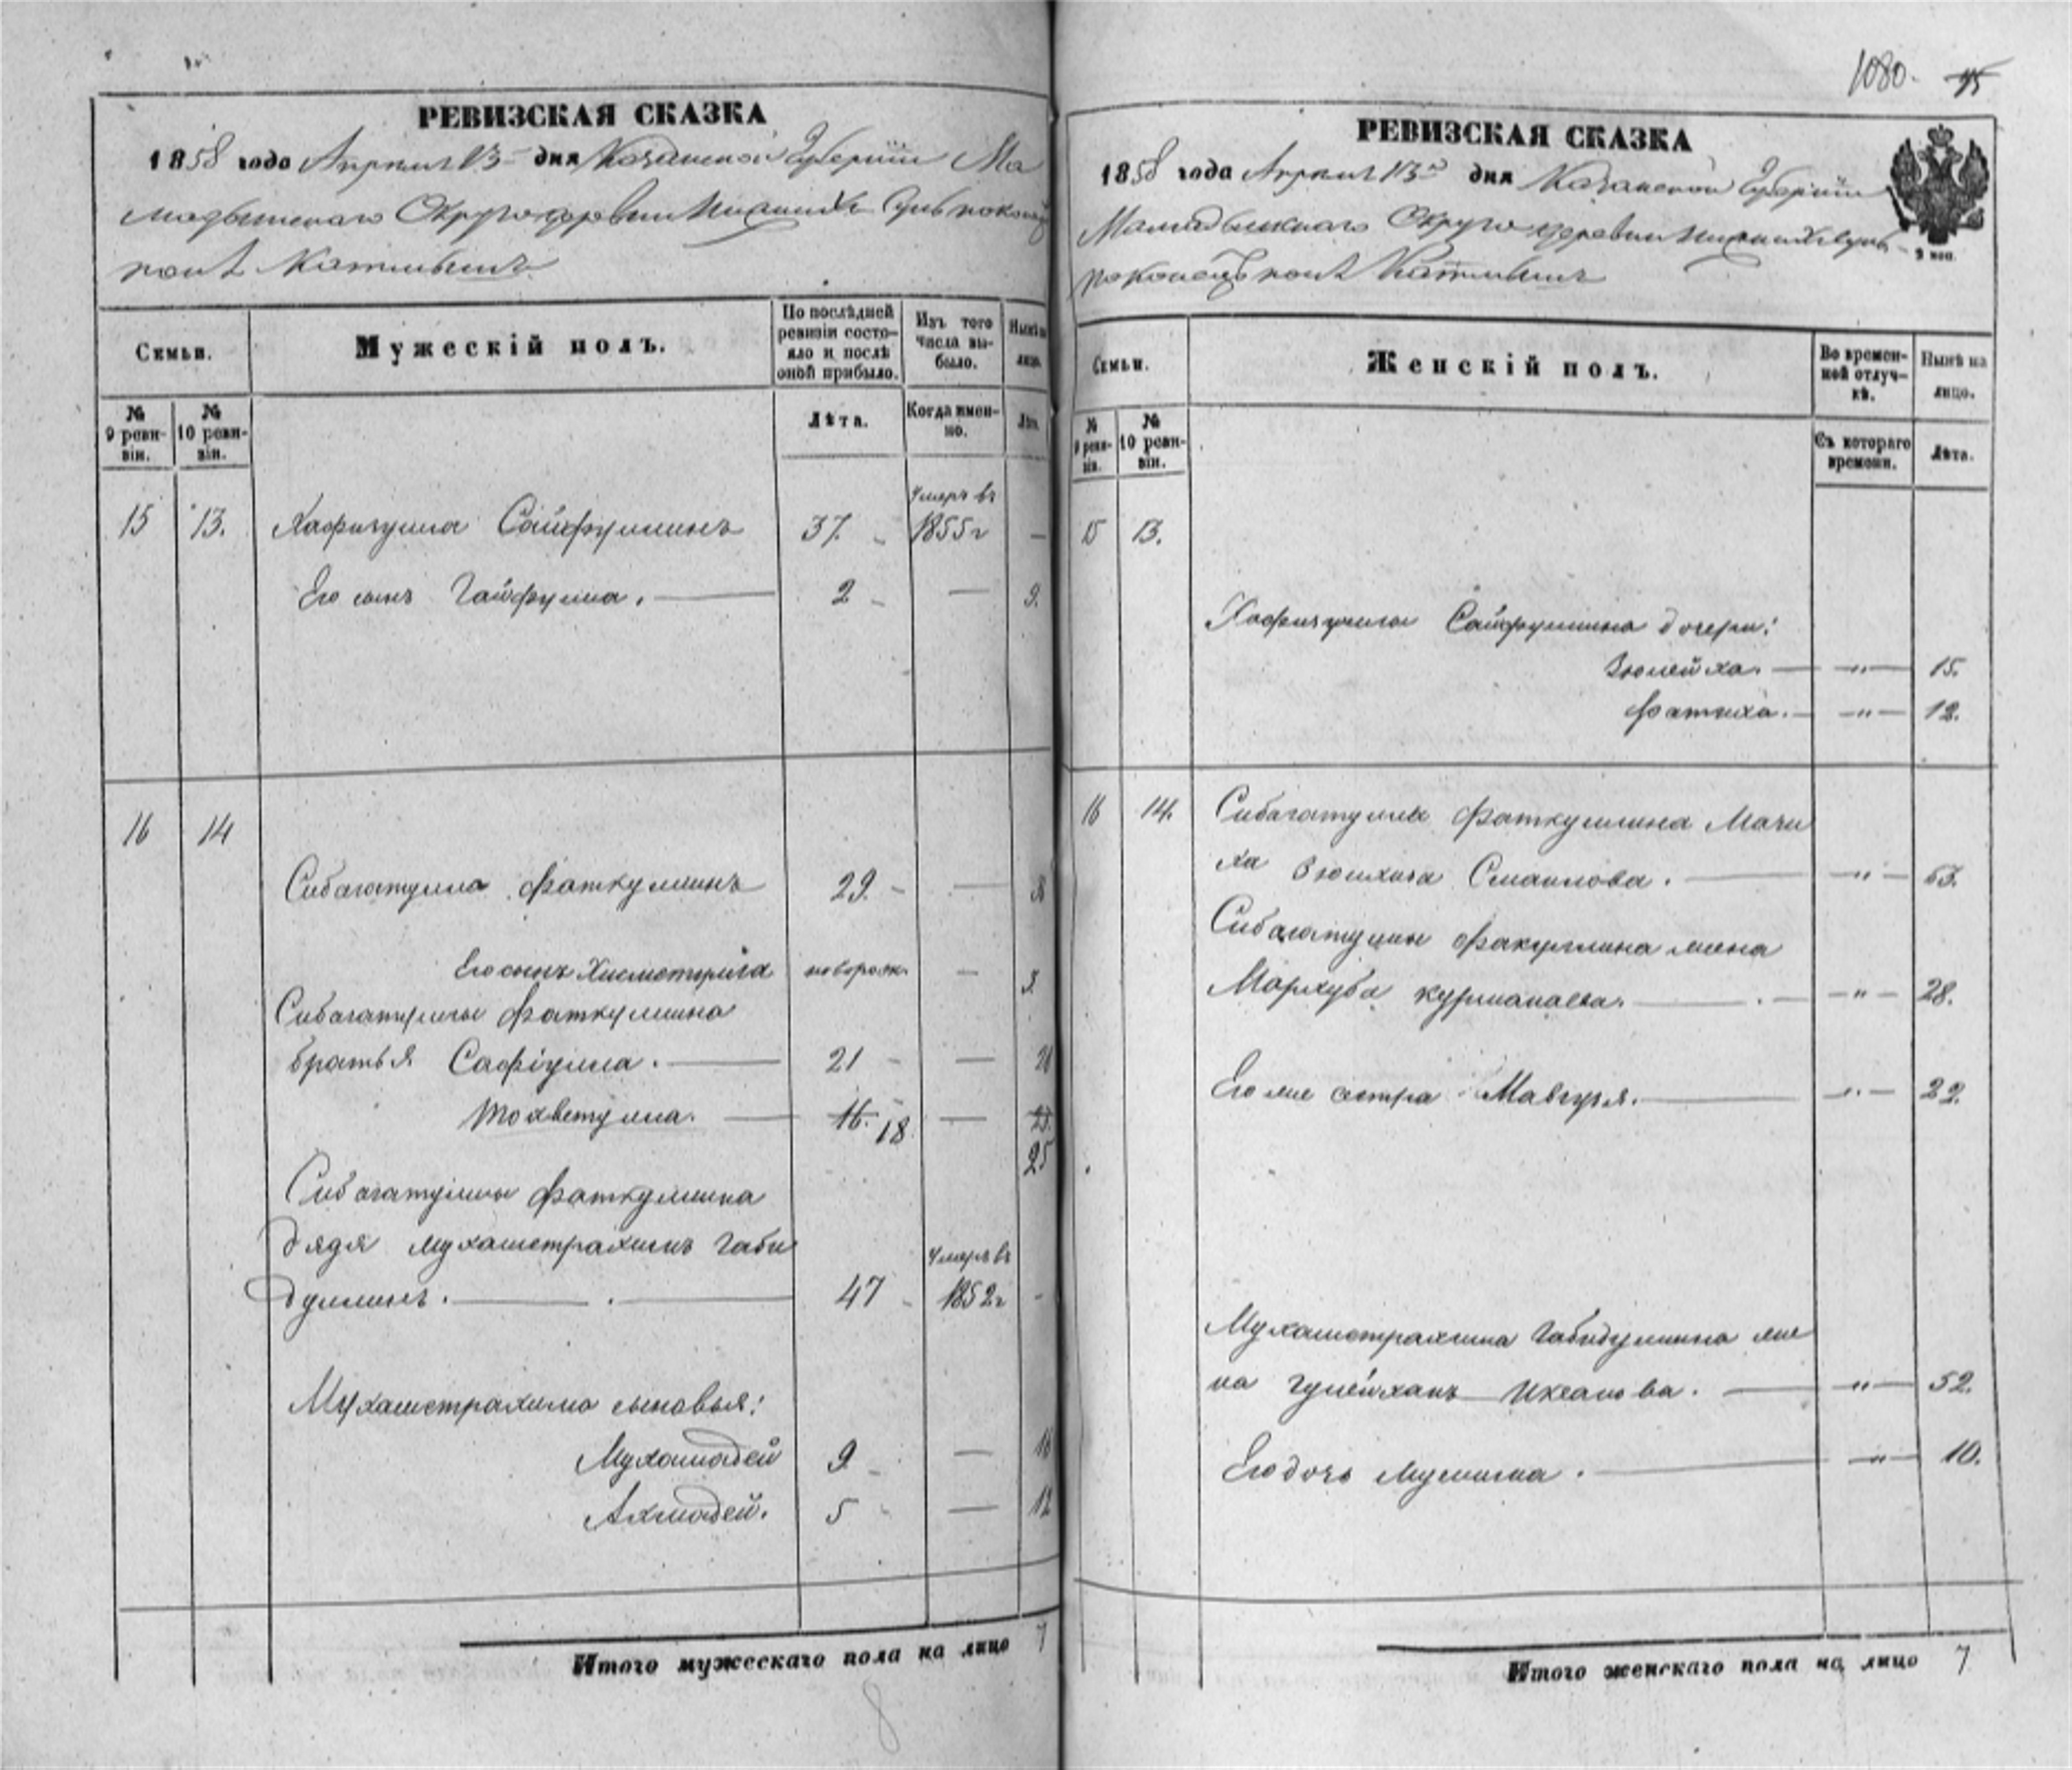 1080. 45
РЕВИЗСКАЯ СКАЗКА
1858 года Апреля 13 дня Казанской Губернии Ма
мадышскаго Округа деревни
Семьи.
Мужескій полъ.
По послѣдней ревизіи состояло и послѣ оной прибыло.
Изъ того числа выбыло.
Нынѣ на лицо.
№ 9 ревизіи.
№ 10 ревизіи.
Лѣта.
Когда именно.
Лѣта.
Умеръ въ
15 13. Хафизулла Сайфуллинъ 37. 1855 г —
Его сынъ Гайфулла. — 2 — 9.
16 14
Сибагатулла Фаткуллинъ 29. —
Его сынъ Хисметулла новорож. —
Сибагатуллы Фаткуллина
братья Сафіулла. — 21 —
16. 18 —
25
Сибагатуллы Фаткуллина
дядя Мухаметрахимъ Габи
Умеръ въ
дуллинъ. — 47 1852 г -
Мухаметрахима сыновья:
Мухамадей 9 — 16
Ахмадей. 5 — 12
Итого мужескаго пола на лицо 7
8
РЕВИЗСКАЯ СКАЗКА
1858 года Апреля 13 дня Казанской Губернии
Мамадышскаго Округа деревни
9 коп.
Семьи.
Женскій полъ.
Во временной отлучкѣ.
Нынѣ на лицо.
№ 9 ревизіи.
№ 10 ревизіи.
Съ котораго времени.
Лѣта.
15 13.
Хафизуллы Сайфуллина дочери:
Зюлейха. — " — 15.
Фатиха. — " — 12.
16 14. Сибагатуллы Фаткуллина Мачи
ха Смаилова. — " — 53.
Сибагатуллы жена
Мархуба Курманаева. — " — 28.
Его же сестра Мавгузя. — " — 22.
Мухаметрахима Габидуллина же
на Гулейханъ Иксанова. — " — 52.
Его дочь — " — 10.
Итого женскаго пола на лицо 7